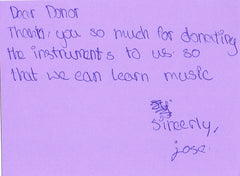 Dear Donor
Thank you so much for donating
the instruments to us so
that we can learn music
Sincerly,
jose.